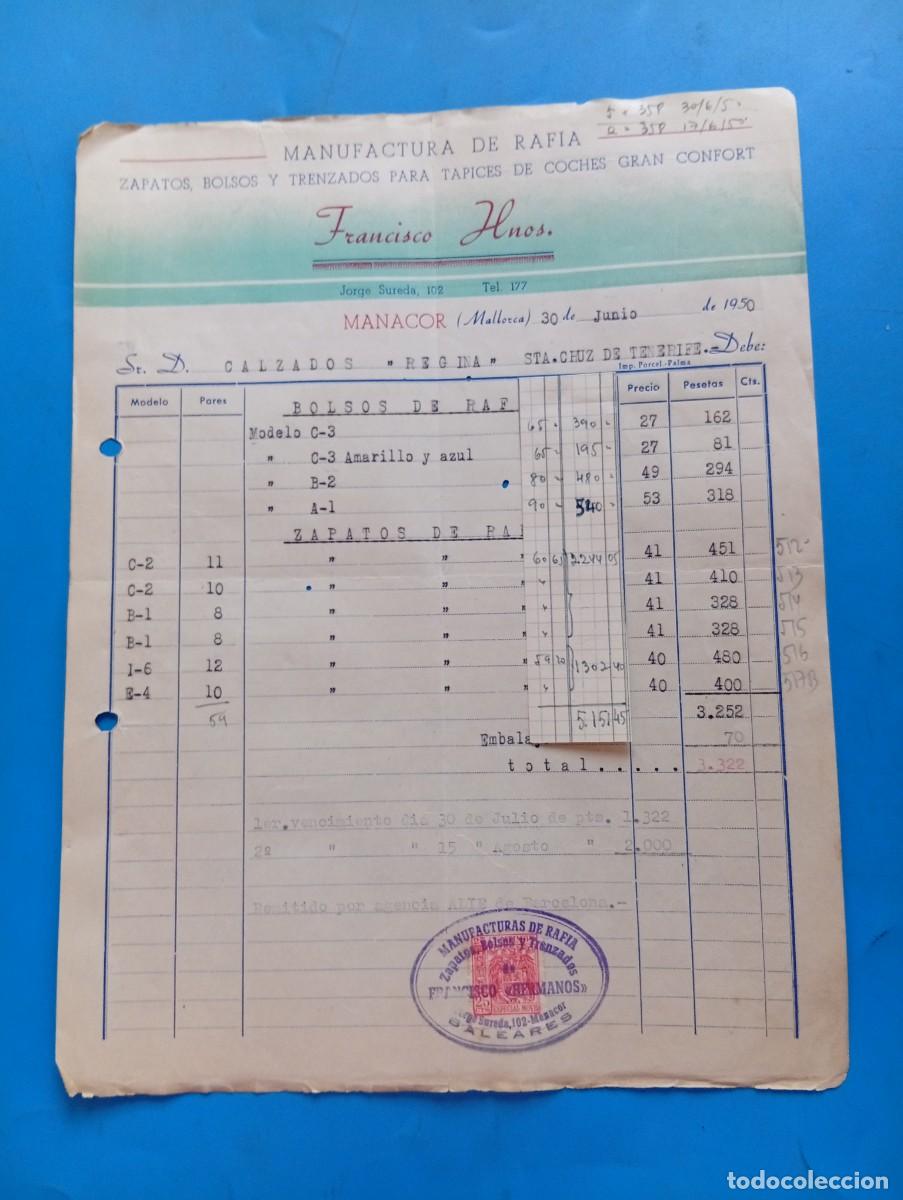 5 = 35P 30/6/50
2 = 35P 17/6/50
MANUFACTURA DE RAFIA
ZAPATOS, BOLSOS Y TRENZADOS PARA TAPICES DE COCHES GRAN CONFORT
Francisco Hnos.
Jorge Sureda, 102 Tel. 177
MANACOR (Mallorca) 30 de Junio de 1950
Sr. D. CALZADOS "REGINA" STA.CRUZ DE TENERIFE.- Debe:
Imp. Parcel.-Palma
Modelo Pares Precio Pesetas Cts.
BOLSOS DE RAF
Modelo C-3 65 - 390 - 27 162
" C-3 Amarillo y azul 65 - 195 - 27 81
" B-2 80 - 480 - 49 294
" A-1 90 - 540 - 53 318
ZAPATOS DE RA
C-2 11 " " " 60 65 2244 05 41 451 512
C-2 10 " " " " 41 410 513
B-1 8 " " " " 41 328 514
B-1 8 " " " " 41 328 515
I-6 12 " " " 59 20 1302 40 40 480 516
E-4 10 " " " " 40 400 517B
59 5.151 45 3.252
Embala 70
total..... 3.322
1er.vencimiento dia 30 de Julio de pts. 1.322
2º " " 15 " Agosto " 2.000
Remitido por agencia ALTE de Barcelona.-
MANUFACTURAS DE RAFIA
Zapatos, Bolsos y Trenzados
de
FRANCISCO «HERMANOS»
Jorge Sureda, 102-Manacor
BALEARES
ESPECIAL MOVIL
todocoleccion